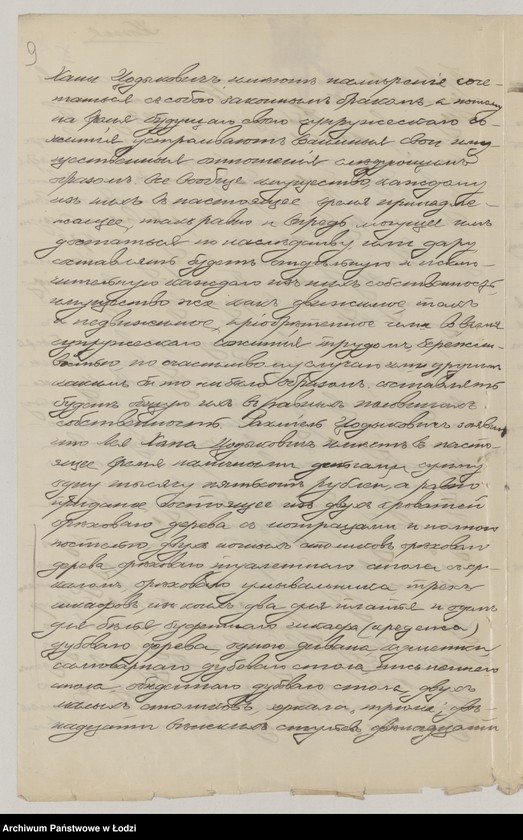 9
Хана Иодыковичъ имѣютъ намѣреніе соче-
таться съ собою законнымъ бракомъ, а потому
на время будущаго своего супружескаго со-
житія устраиваютъ взаимныя свои иму
щественныя отношенія слѣдующимъ
образомъ. Все вообще имущество, каждому
изъ нихъ въ настоящее время принадле-
жащее, такъ равно и впредь могущее имъ
достаться по наслѣдству или дару
составлять будетъ отдѣльную и исклю-
чительную каждаго изъ нихъ собственность
имущество же какъ движимое такъ
и недвижимое, пріобрѣтенное ими во время
супружескаго сожитія трудомъ, бережли-
востью по счастливому случаю или другимъ
какимъ бы то ни было образомъ, составлять
будетъ общую ихъ въ равныхъ половинахъ
собственность. Иодыковичъ заявилъ
что Хана Иодыковичъ имѣетъ въ насто-
ящее время наличными деньгами сумму
одну тысячу пятьсотъ рублей, а равно
приданое состоящее изъ двухъ кроватей
орѣховаго дерева съ матрацами и полною
постелью, двухъ ночныхъ столиковъ орѣховаго
дерева, туалетнаго стола съ зер-
каломъ, орѣховаго умывальника, трехъ
шкафовъ, изъ коихъ два для платья и одинъ
для бѣлья, буфетнаго шкафа (креденса)
дубоваго дерева, одного дивана
самоварнаго дубоваго стола, письменнаго
стола, обѣденнаго дубоваго стола, двухъ
малыхъ столиковъ, зеркала, трюмо, двѣ-
надцати вѣнскихъ стульевъ, двѣнадцати
Archiwum Państwowe w Łodzi